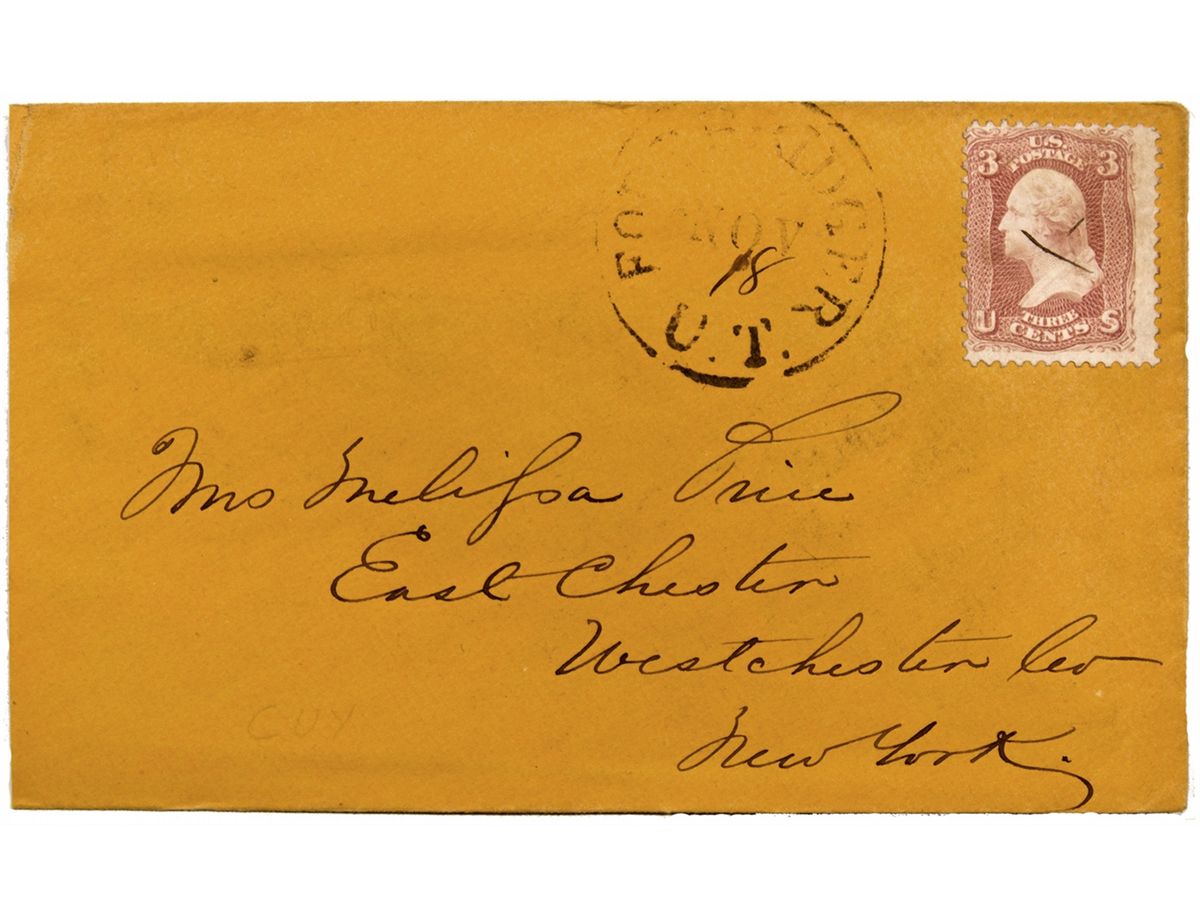 FORT BRIDGER
NOV
18
U.T.
U.S.
POSTAGE
3 3
U THREE S
CENTS
Mrs Melissa Price
East Chester
Westchester Co
New York.
CUY